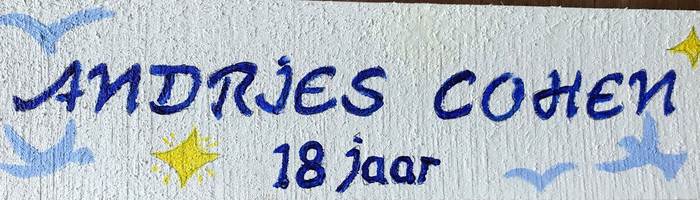 ANDRIES COHEN
18 jaar